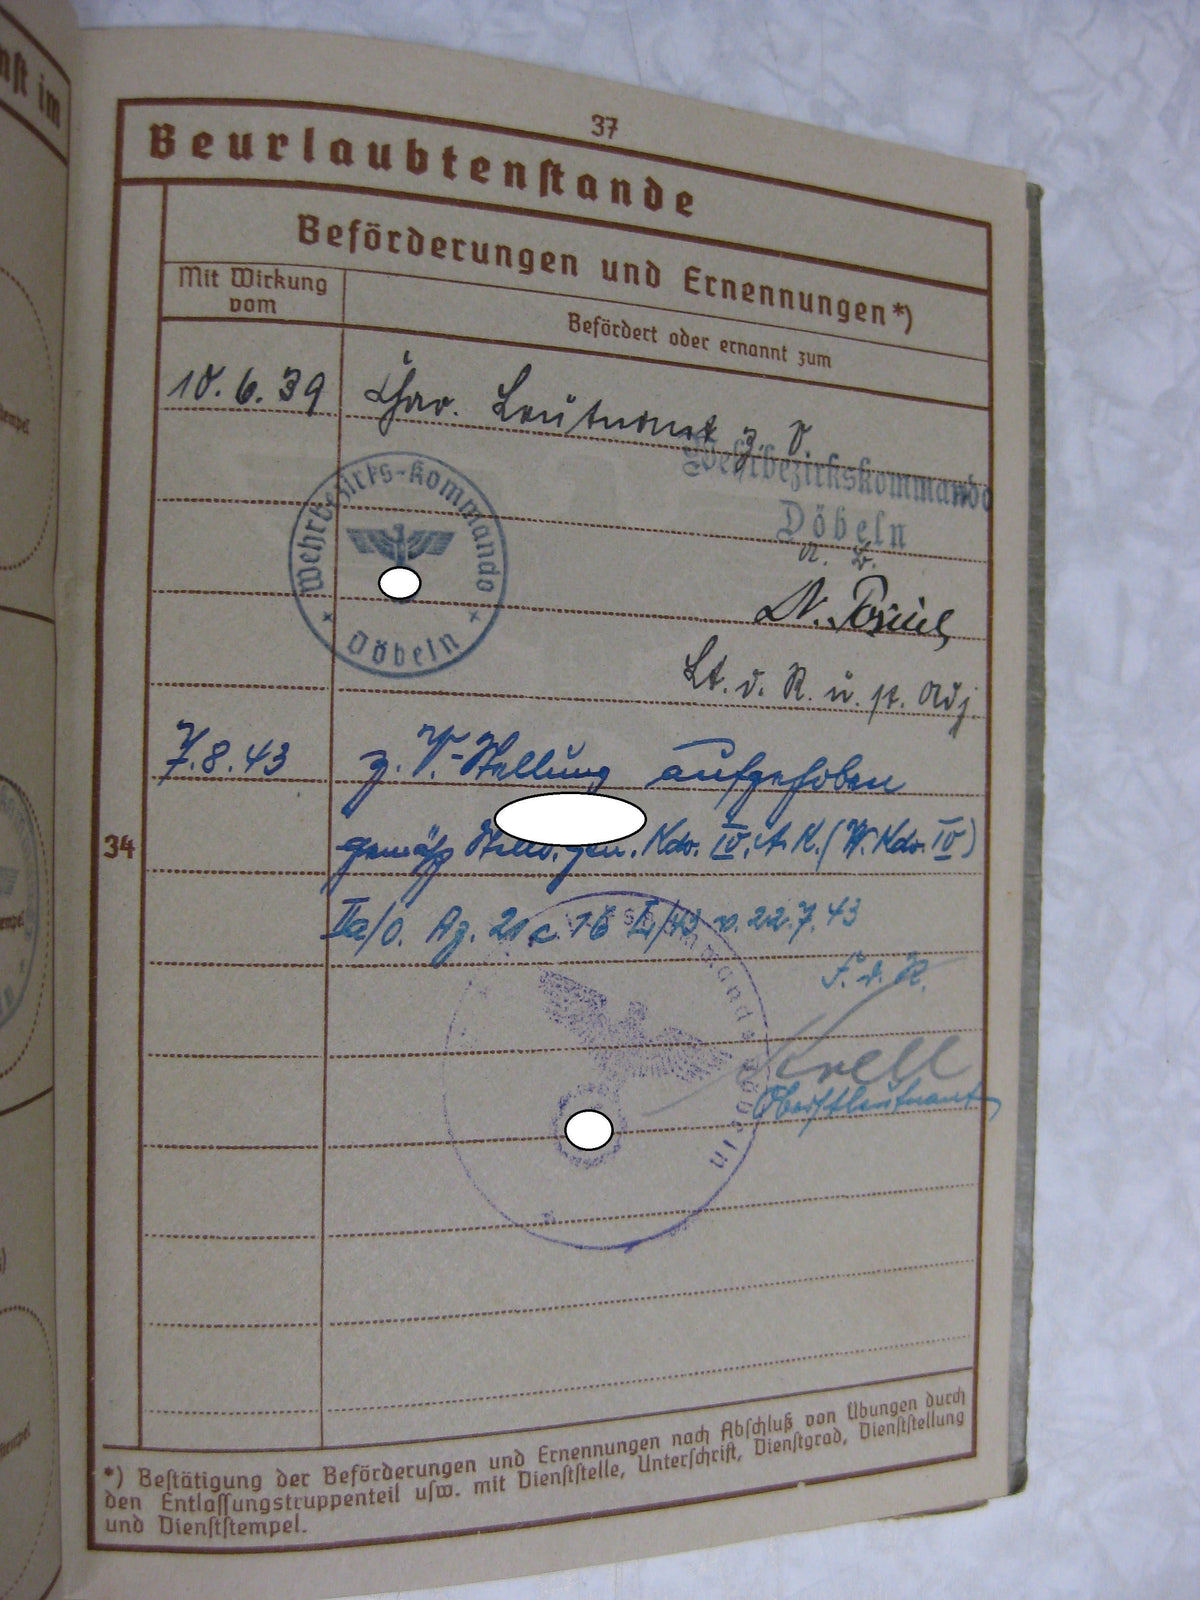 nst im
37
Beurlaubtenstande
Beförderungen und Ernennungen*)
Mit Wirkung
vom
Befördert oder ernannt zum
10.6.39 Char. Leutnant z V
Wehrbezirkskommando
Döbeln
Wehrbezirks-Kommando
Döbeln
Lt. d. R. u. st. Adj.
7.8.43 z. V.-Stellung aufgehoben
34
gemäß Stellv. Gen. Kdo. IV. A.K. (W. Kdo. IV)
IIa/O. Az. 21 c 16 v. 22.7.43
F. d. R.
Krell
Oberstleutnant
*) Bestätigung der Beförderungen und Ernennungen nach Abschluß von Übungen durch
den Entlassungstruppenteil usw. mit Dienststelle, Unterschrift, Dienstgrad, Dienststellung
und Dienststempel.